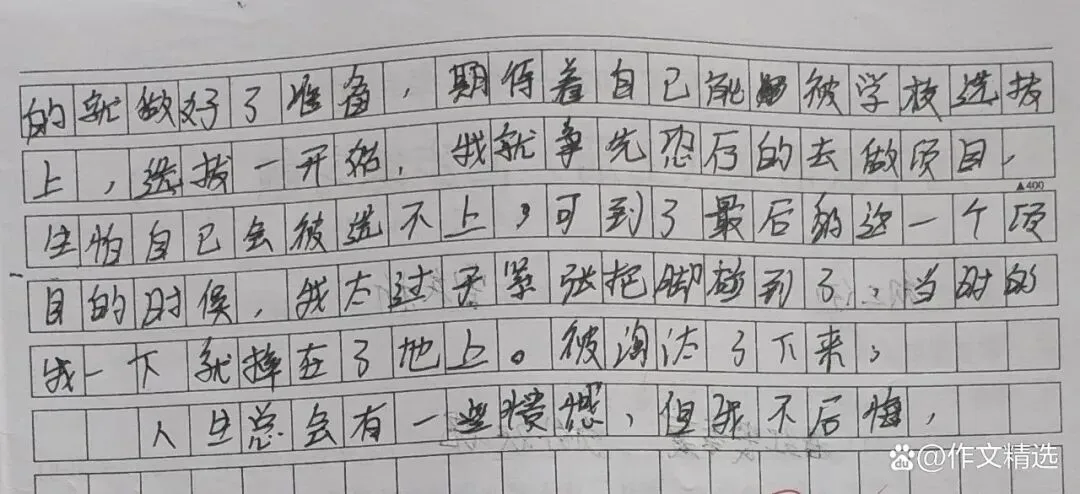 的就做好了准备，期待着自己能被学校选拔
上，选拔一开始，我就争先恐后的去做项目，
▲400
生怕自己会被选不上，可到了最后的这一个项
目的时候，我太过于紧张把脚碰到了，当时的
我一下就摔在了地上。被淘汰了下来，
人生总会有一些遗憾，但我不后悔，
Baidu @作文精选